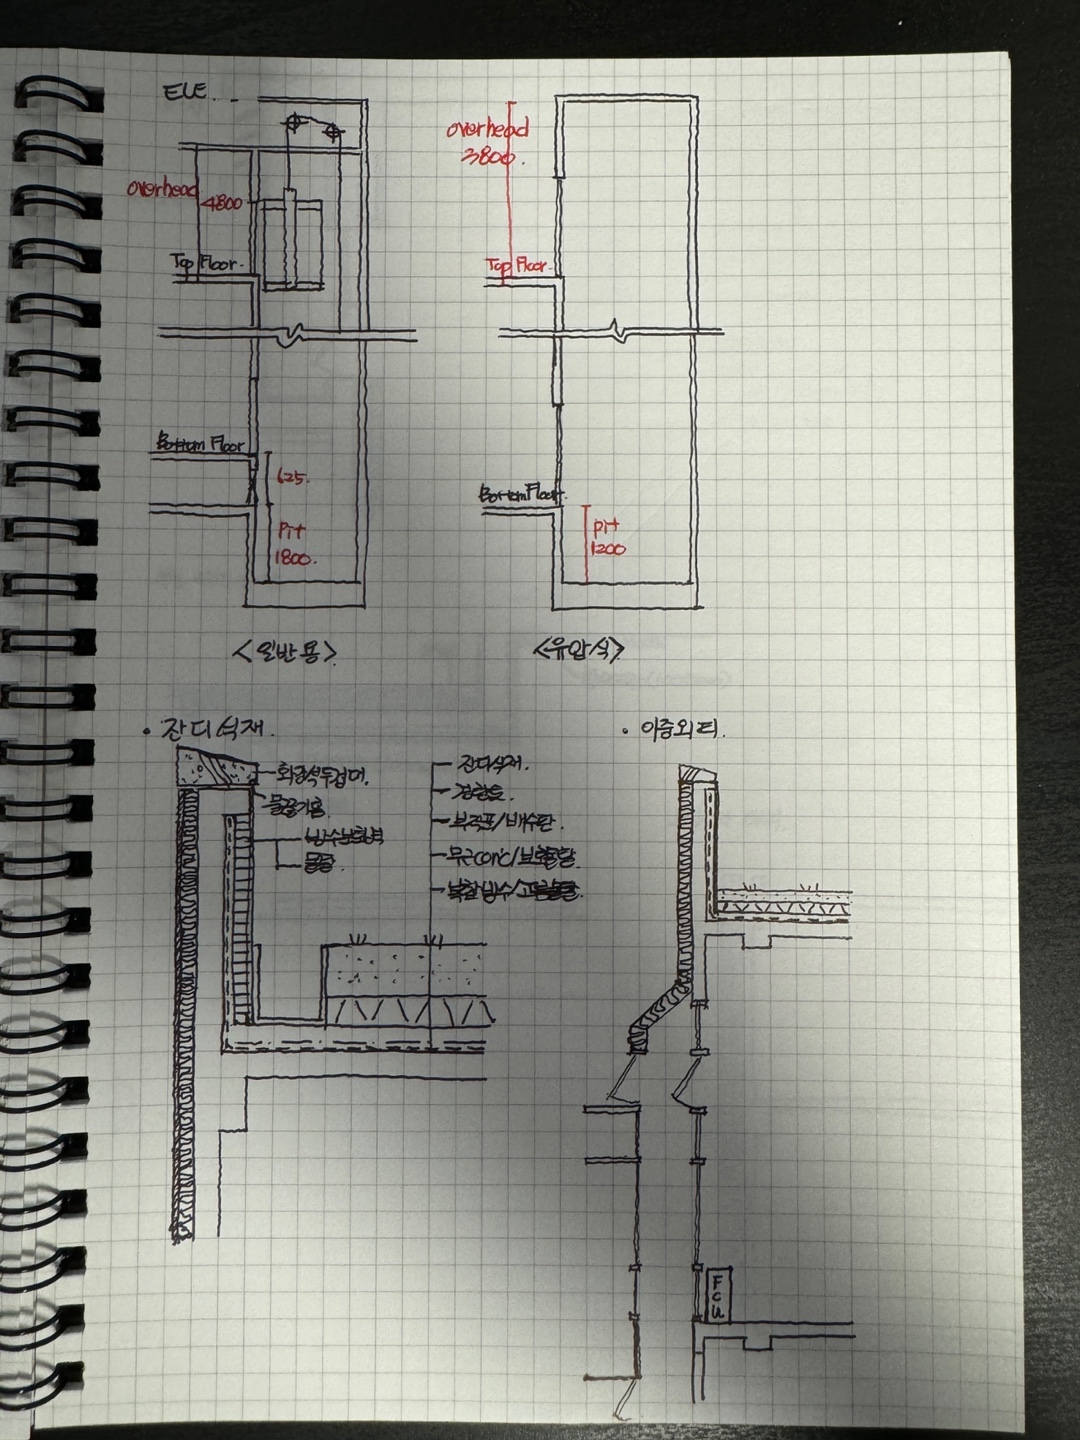 ELE...
overhead
4800
Top Floor.
Bottom Floor
625.
Pit
1800.
<일반용>
overhead
3800.
Top Floor.
Bottom Floor.
pit
1200
<유압식>
• 잔디식재.
화강석두겁대.
물끊기홈
방수보호벽
몰탈
잔디식재.
경량토.
부직포/배수판.
무근con'c/보호몰탈.
복합방수/고름몰탈.
• 이중외피.
FCU